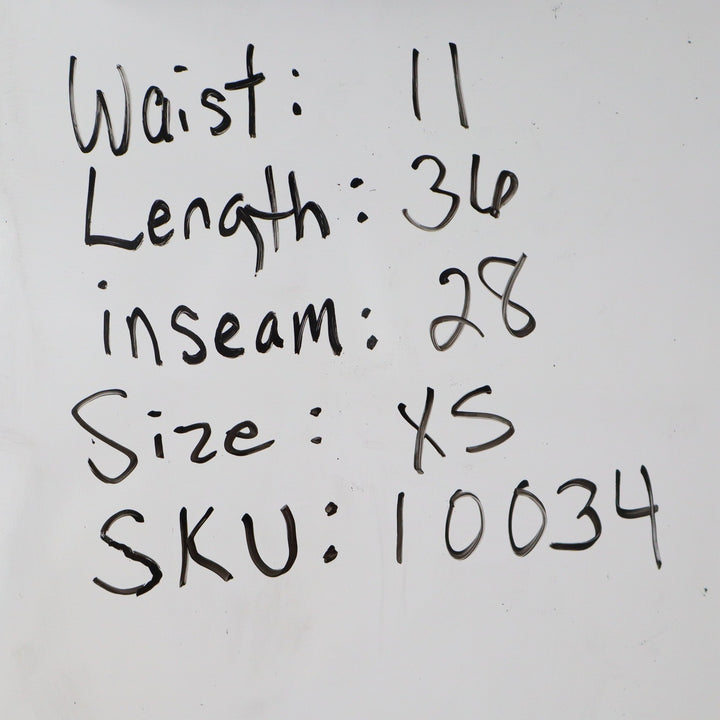 Waist: 11
Length: 36
inseam: 28
Size: XS
SKU: 10034